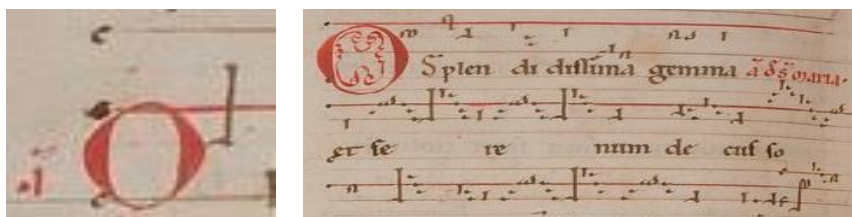 c
O
O
Splen di diſſima gemma maria.
et ſe re num de cuſ ſo